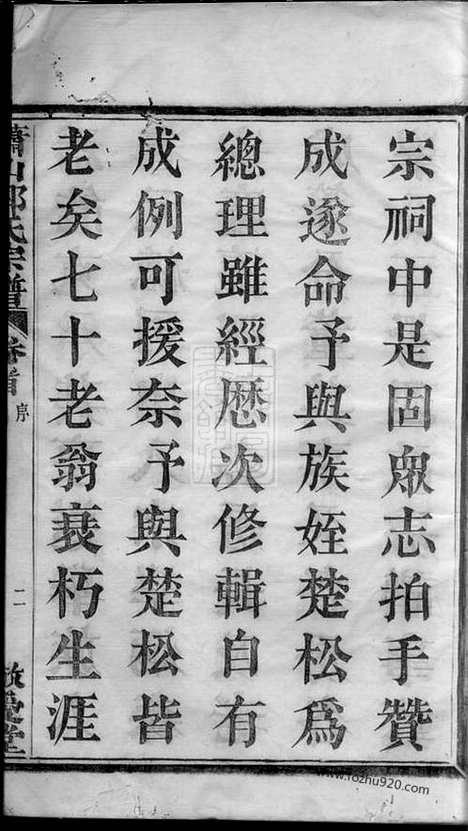 宗祠中是固眾志拍手贊
成遂命予與族姪楚松爲
總理雖經歴次修輯自有
成例可援奈予與楚松皆
老矣七十老翁衰朽生涯
蕭山郎氏宗譜
卷首
序
二
www.fozhu920.com